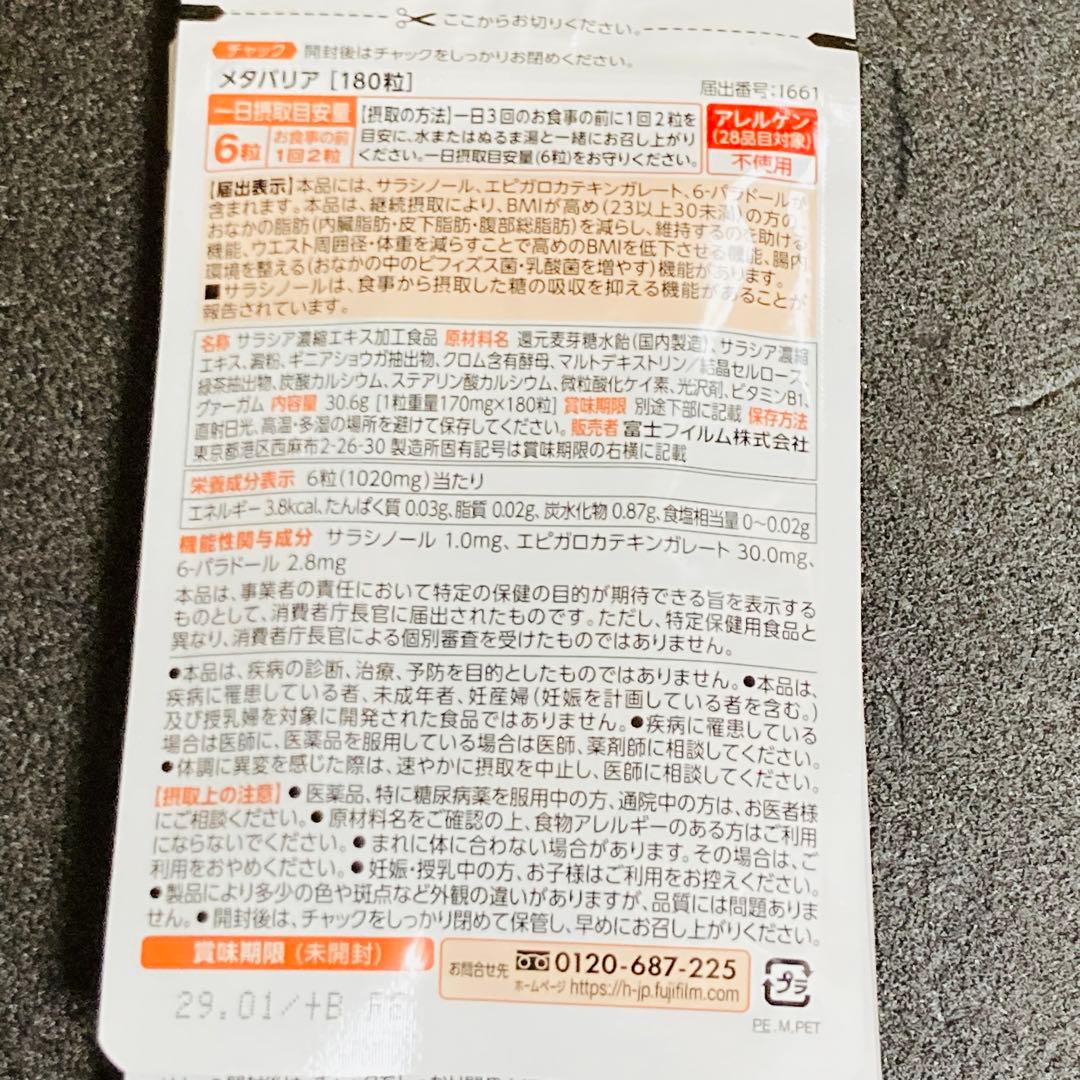 ここからお切りください。
チャック 開封後はチャックをしっかりお閉めください。
メタバリア [180粒] 届出番号:I661
一日摂取目安量
6粒 お食事の前 1回2粒
【摂取の方法】一日3回のお食事の前に1回2粒を
目安に、水またはぬるま湯と一緒にお召し上がり
ください。一日摂取目安量(6粒)をお守りください。
アレルゲン
(28品目対象)
不使用
【届出表示】本品には、サラシノール、エピガロカテキンガレート、6-パラドールが
含まれます。本品は、継続摂取により、BMIが高め(23以上30未満)の方の、
おなかの脂肪(内臓脂肪・皮下脂肪・腹部総脂肪)を減らし、維持するのを助ける
機能、ウエスト周囲径・体重を減らすことで高めのBMIを低下させる機能、腸内
環境を整える(おなかの中のビフィズス菌・乳酸菌を増やす)機能があります。
■サラシノールは、食事から摂取した糖の吸収を抑える機能があることが
報告されています。
名称 サラシア濃縮エキス加工食品 原材料名 還元麦芽糖水飴(国内製造)、サラシア濃縮
エキス、澱粉、ギニアショウガ抽出物、クロム含有酵母、マルトデキストリン/結晶セルロース、
緑茶抽出物、炭酸カルシウム、ステアリン酸カルシウム、微粒酸化ケイ素、光沢剤、ビタミンB1、
グァーガム 内容量 30.6g [1粒重量170mg×180粒] 賞味期限 別途下部に記載 保存方法
直射日光、高温・多湿の場所を避けて保存してください。販売者 富士フイルム株式会社
東京都港区西麻布2-26-30 製造所固有記号は賞味期限の右横に記載
栄養成分表示 6粒(1020mg)当たり
エネルギー 3.8kcal、たんぱく質 0.03g、脂質 0.02g、炭水化物 0.87g、食塩相当量 0～0.02g
機能性関与成分 サラシノール 1.0mg、エピガロカテキンガレート 30.0mg、
6-パラドール 2.8mg
本品は、事業者の責任において特定の保健の目的が期待できる旨を表示する
ものとして、消費者庁長官に届出されたものです。ただし、特定保健用食品と
異なり、消費者庁長官による個別審査を受けたものではありません。
●本品は、疾病の診断、治療、予防を目的としたものではありません。●本品は、
疾病に罹患している者、未成年者、妊産婦(妊娠を計画している者を含む。)
及び授乳婦を対象に開発された食品ではありません。●疾病に罹患している
場合は医師に、医薬品を服用している場合は医師、薬剤師に相談してください。
●体調に異変を感じた際は、速やかに摂取を中止し、医師に相談してください。
【摂取上の注意】●医薬品、特に糖尿病薬を服用中の方、通院中の方は、お医者様
にご相談ください。●原材料名をご確認の上、食物アレルギーのある方はご利用
にならないでください。●まれに体に合わない場合があります。その場合は、ご
利用をおやめください。●妊娠・授乳中の方、お子様はご利用をお控えください。
●製品により多少の色や斑点など外観の違いがありますが、品質には問題ありま
せん。●開封後は、チャックをしっかり閉めて保管し、早めにお召し上がりください。
賞味期限 (未開封)
29.01/+B
お問合せ先 0120-687-225
ホームページ https://h-jp.fujifilm.com
プラ
PE.M.PET